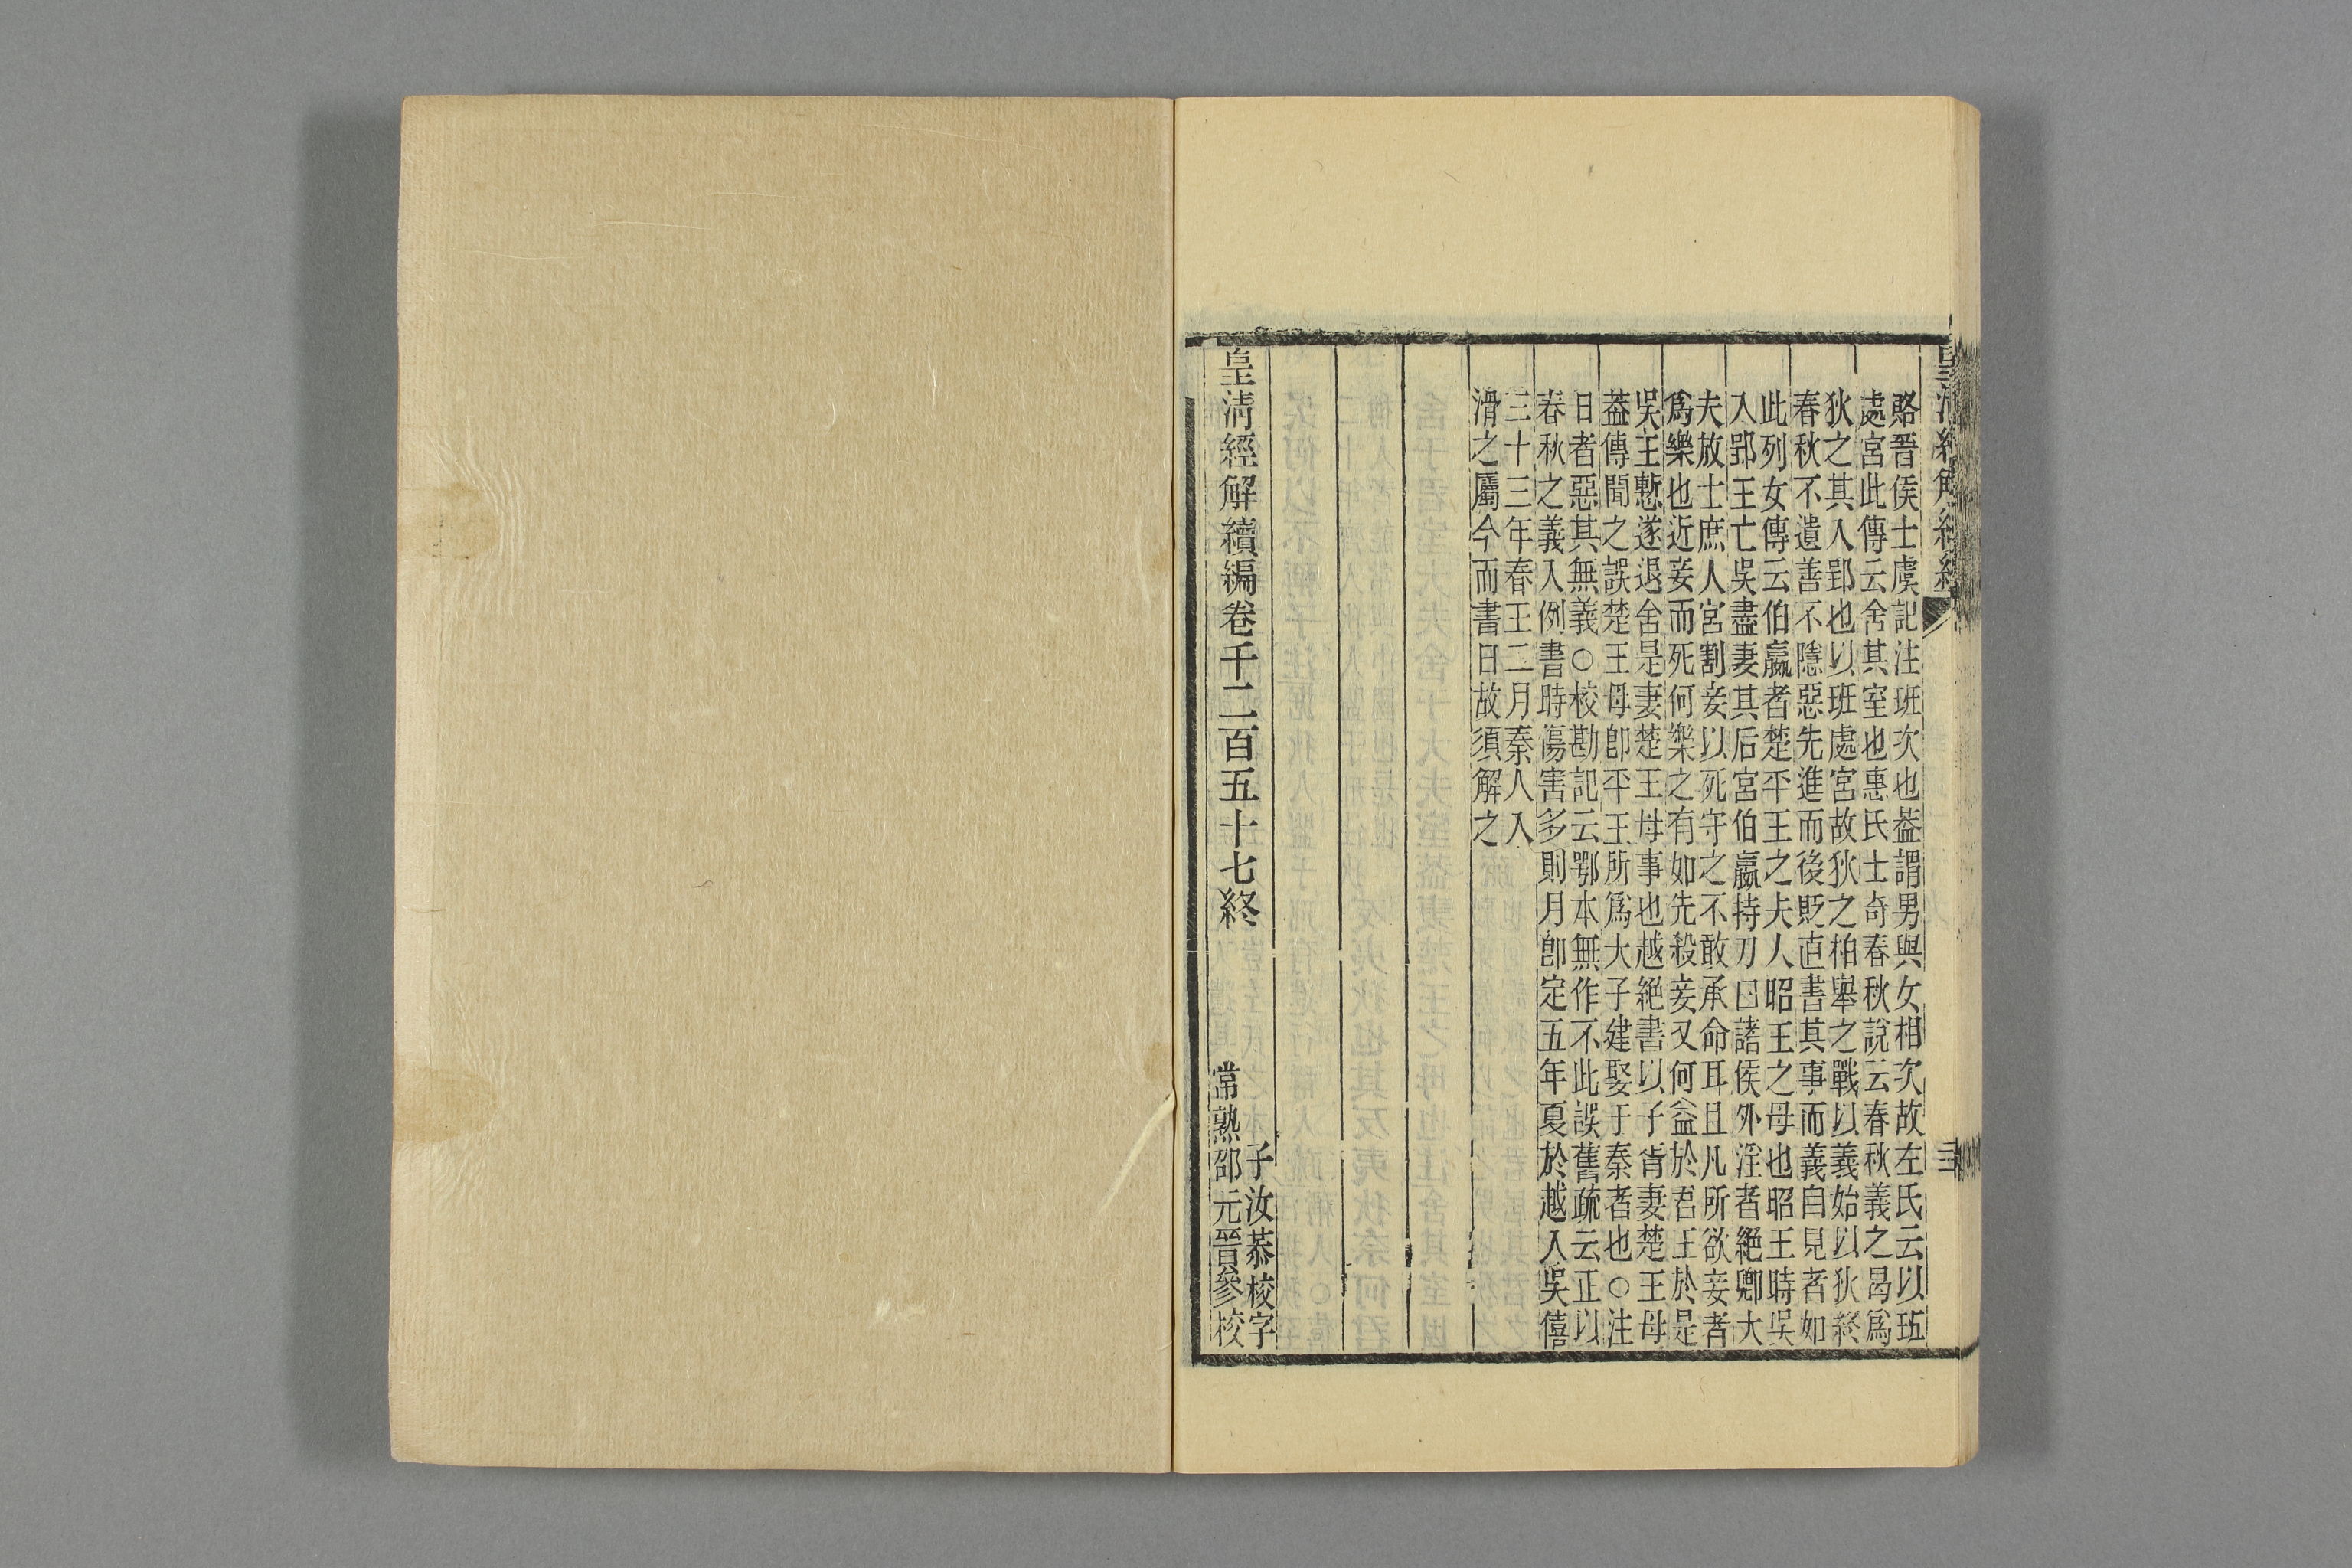 賂晉侯士虞記注班次也葢謂男與女相次故左氏云以班
處宮此傳云舍其室也惠氏士奇春秋說云春秋義之曷爲
狄之其入郢也以班處宮故狄之柏舉之戰以義始以狄終
春秋不遺善不隱惡先進而後貶直書其事而義自見者如
此列女傳云伯嬴者楚平王之夫人昭王之母也昭王時吳
入郢王亡吳盡妻其后宮伯嬴持刀曰諸侯外淫者絕卿大
夫放士庶人宮割妾以死守之不敢承命耳且凡所欲妾者
爲樂也近妾而死何樂之有如先殺妾又何益於君王於是
吳王慙遂退舍是妻楚王母事也越絕書以子胥妻楚王母
葢傳聞之誤楚王母卽平王所爲大子建娶于秦者也○注
日者惡其無義○校勘記云鄂本無作不此誤舊疏云正以
春秋之義入例書時傷害多則月卽定五年夏於越入吳僖
三十三年春王二月秦人入
滑之屬今而書日故須解之
皇清經解續編卷千二百五十七終
子汝恭校字
常熟邵元晉參校